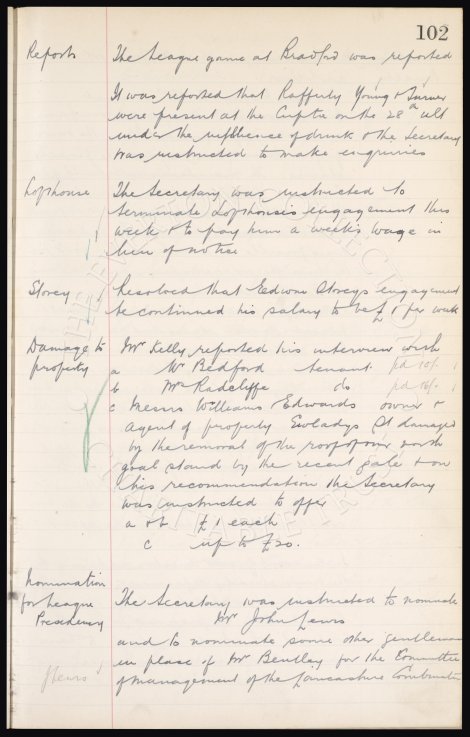 102
Reports The League game at Bradford was reported
It was reported that Rafferty Young & Turner
were present at the Cup tie on the 28th ult
under the influence of drink & the Secretary
was instructed to make enquiries
Lofthouse The Secretary was instructed to
terminate Lofthouse's engagement this
week & to pay him a week's wage in
lieu of notice
Storey Resolved that Edwin Storeys engagement
be continued his salary to be £1 per week
Damage to Mr Kelly reported his interview with
property a Mr Bedford tenant pd 10/-
b Mrs Radcliffe do pd 16/-
c Messrs Williams Edwards owner &
Agent of property Gwladys St damaged
by the removal of the roof of our north
goal stand by the recent gale & on
his recommendation the Secretary
was instructed to offer
a & b £1 each
c up to £20.
Nomination
for League The Secretary was instructed to nominate
Presidency Mr John Lewis
and to nominate some other gentleman
in place of Mr Bentley for the Committee
J Lewis of Management of the Lancashire Combination